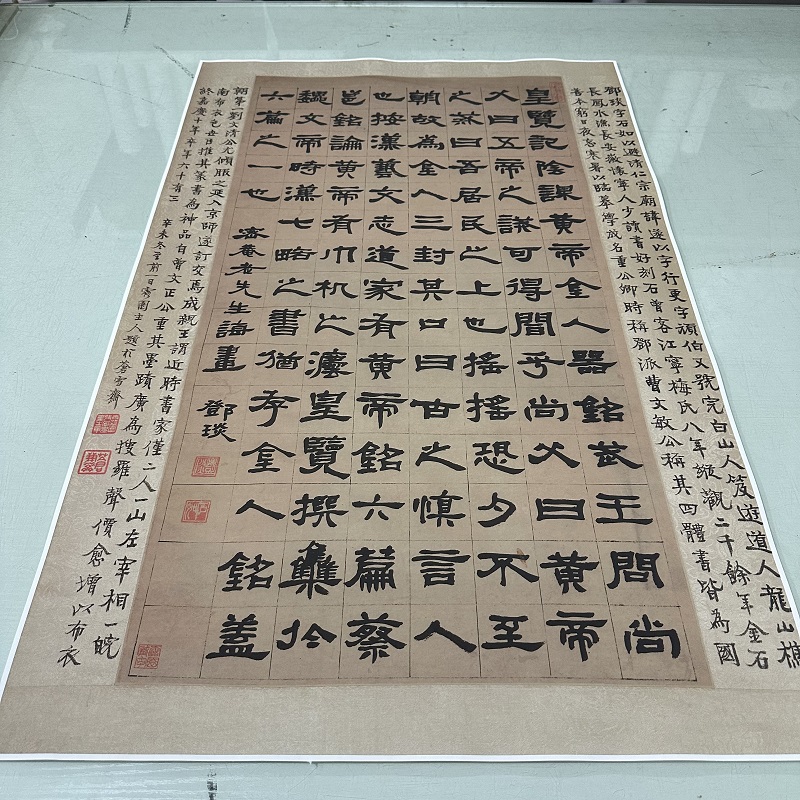 鄧琰字石如以避清仁宗廟諱遂以字行更字頑伯又號完白山人笈遊道人龍山樵
長鳳水漁長安徽懷寧人少讀書好刻石曾客江寧梅氏八年縱觀二千餘年金石
善本窮日夜寒暑以臨摹學成名重公卿時稱鄧派曹文敏公稱其四體書皆為國
皇覽記陰謀黃帝金人器銘武王問尚
父曰五帝之誡可得聞乎尚父曰黃帝
之誡曰吾居民之上也搖搖恐夕不至
朝故為金人三封其口曰古之慎言人
也按漢藝文志道家有黃帝銘六篇蔡
邕銘論黃帝有巾机之灋皇覽撰集於
魏文帝時漢七略之書猶存金人銘蓋
六篇之一也
菴老先生誨畫 鄧琰
朝第一劉文清公尤傾服之延入京師遂訂交焉成親王謂近時書家僅二人一山左宰相一皖
南布衣包世臣推其篆書為神品自曾文正公重其墨蹟廣為搜羅聲價愈增以布衣
終嘉慶十年卒年六十有三 辛未冬至前一日寄園主人題於蒼雪齋